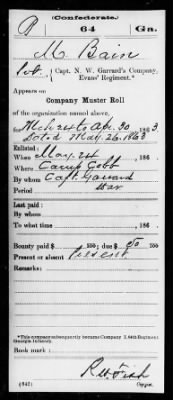 (Confederate.)
B 64 Ga.
M. Bain
Pvt., Capt. N. W. Garrard's Company,
Evans' Regiment.*
Appears on
Company Muster Roll
of the organization named above,
for Feb 28 to Apr. 30, 1863.
dated May 26, 1863
Enlisted:
When May 24, 186 .
Where Camp Cobb
By whom Capt. Garrard
Period War
Last paid:
By whom
To what time , 186 .
Bounty paid $ 100; due $ 50 100
Present or absent Present
Remarks:
*This company subsequently became Company I, 64th Regiment
Georgia Infantry.
Book mark:
R. W. Fish
(642) Copyist.